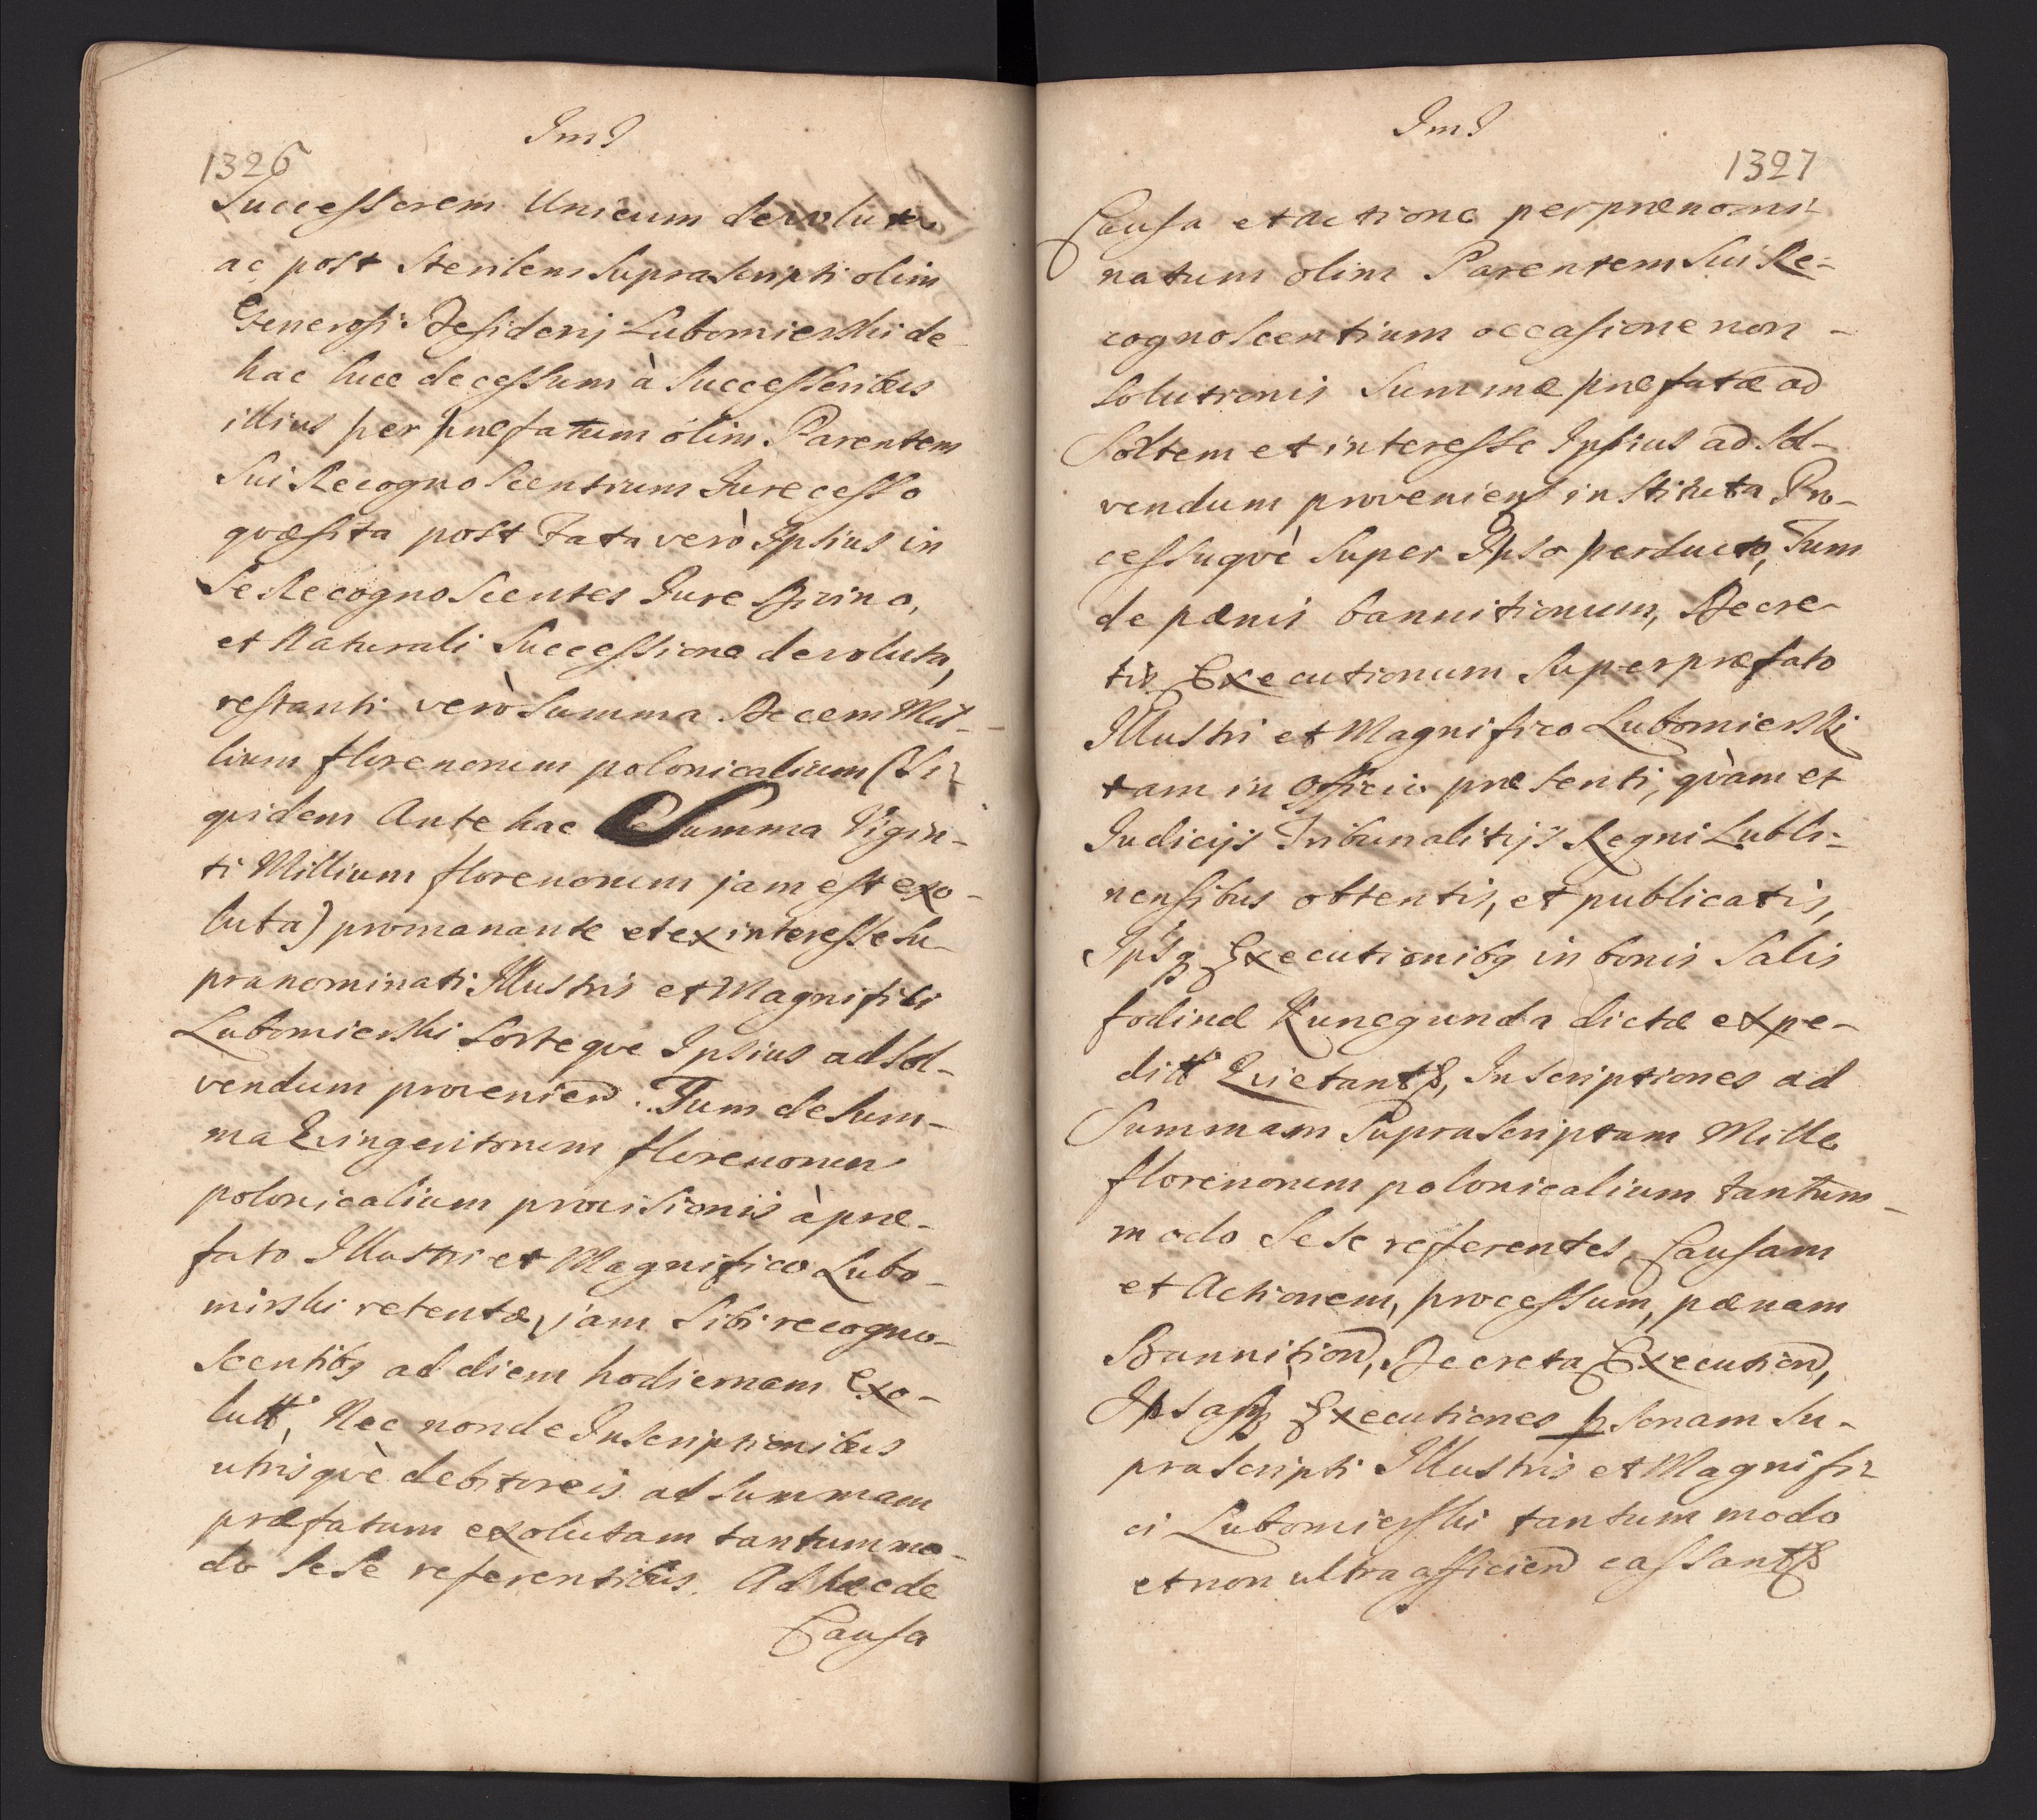 ImI
1326
Successorem Unicum devoluta
ac post sterilem suprascripti olim
Generosi Desiderij Lubomierski de
hac luce decessum à Successoribus
illius per præfatum olim Parentem
Sui Recognoscentium Jure cesso
qvæsita post Fata verò Ipsius in
Se Recognoscentes Jure Divino,
et Naturali Successione devoluta,
restanti verò Summa Decem Mil-
lium florenorum polonicalium (Si-
qvidem Ante hac Summa Vigin-
ti Millium florenorum jam est exo-
luta) promanante et ex interesse su-
pranominati Illustris et Magnifici
Lubomierski Sorteqve Ipsius ad sol-
vendum provenien. Tum de Sum-
ma Qvingentorum florenorum
polonicalium provisionis à præ-
fato Illustri et Magnifico Lubo-
mirski retentæ, jam Sibi recogno-
scentibq ad diem hodiernam exo-
lutt, Nec non de Inscriptionibus
utrisqvè debitoreis ad Summam
præfatam exolutam tantummo-
do Sese referentibus. Ad hæc de
Causa
ImI
1327
Causa et actione per prænomi-
natum olim Parentem Sui Re-
cognoscentium occasione non
Solutionis Summæ præfatæ ad
Sortem et interesse Ipsius ad Sol-
vendum proveniens instituta Pro-
cessuqvè Super Ipso perducto, Tum
de pænis bannitionum, Decre-
tis Executionum Super præfato
Illustri et Magnifico Lubomierski
tam in Officio præsenti, qvàm et
Judicijs Tribunalitijs Regni Lubli-
nensibus obtentis, et publicatis,
Ipsq Executionibq in bonis Salis
fodinæ Kunegunda dictæ expe-
ditt Qvietantt, Inscriptiones ad
Summam Suprascriptam Mille
florenorum polonicalium tantum-
modo Sese referentes, Causam
et Actionem, processum, pænam
Bannition, Decreta Execution,
Ipsasq Executiones psonam Su-
prascripti Illustris et Magnifi-
ci Lubomierski tantummodo
et non ultra afficien cassantt